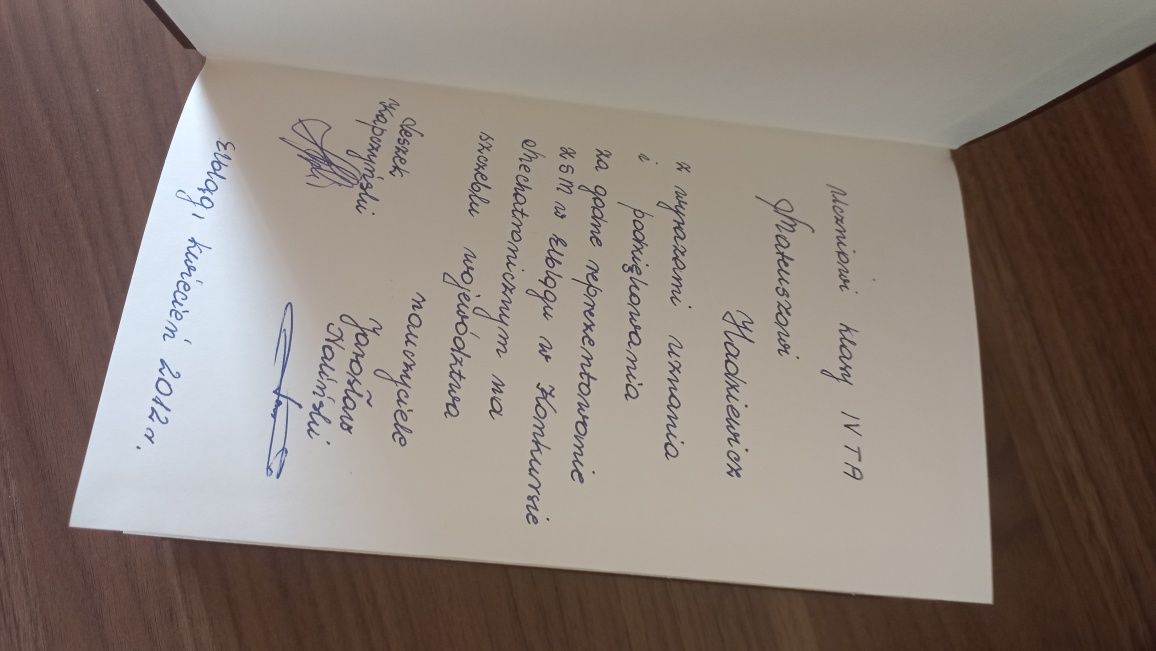 Uczniowi klasy IV TA
Mateuszowi
Hadziewicz
z wyrazami uznania
i podziękowania
za godne reprezentowanie
ZSM w Elblągu w Konkursie
Mechatronicznym na
szczeblu województwa
nauczyciele
Leszek
Kapczyński
Jarosław
Kaliński
Elbląg, kwiecień 2012 r.